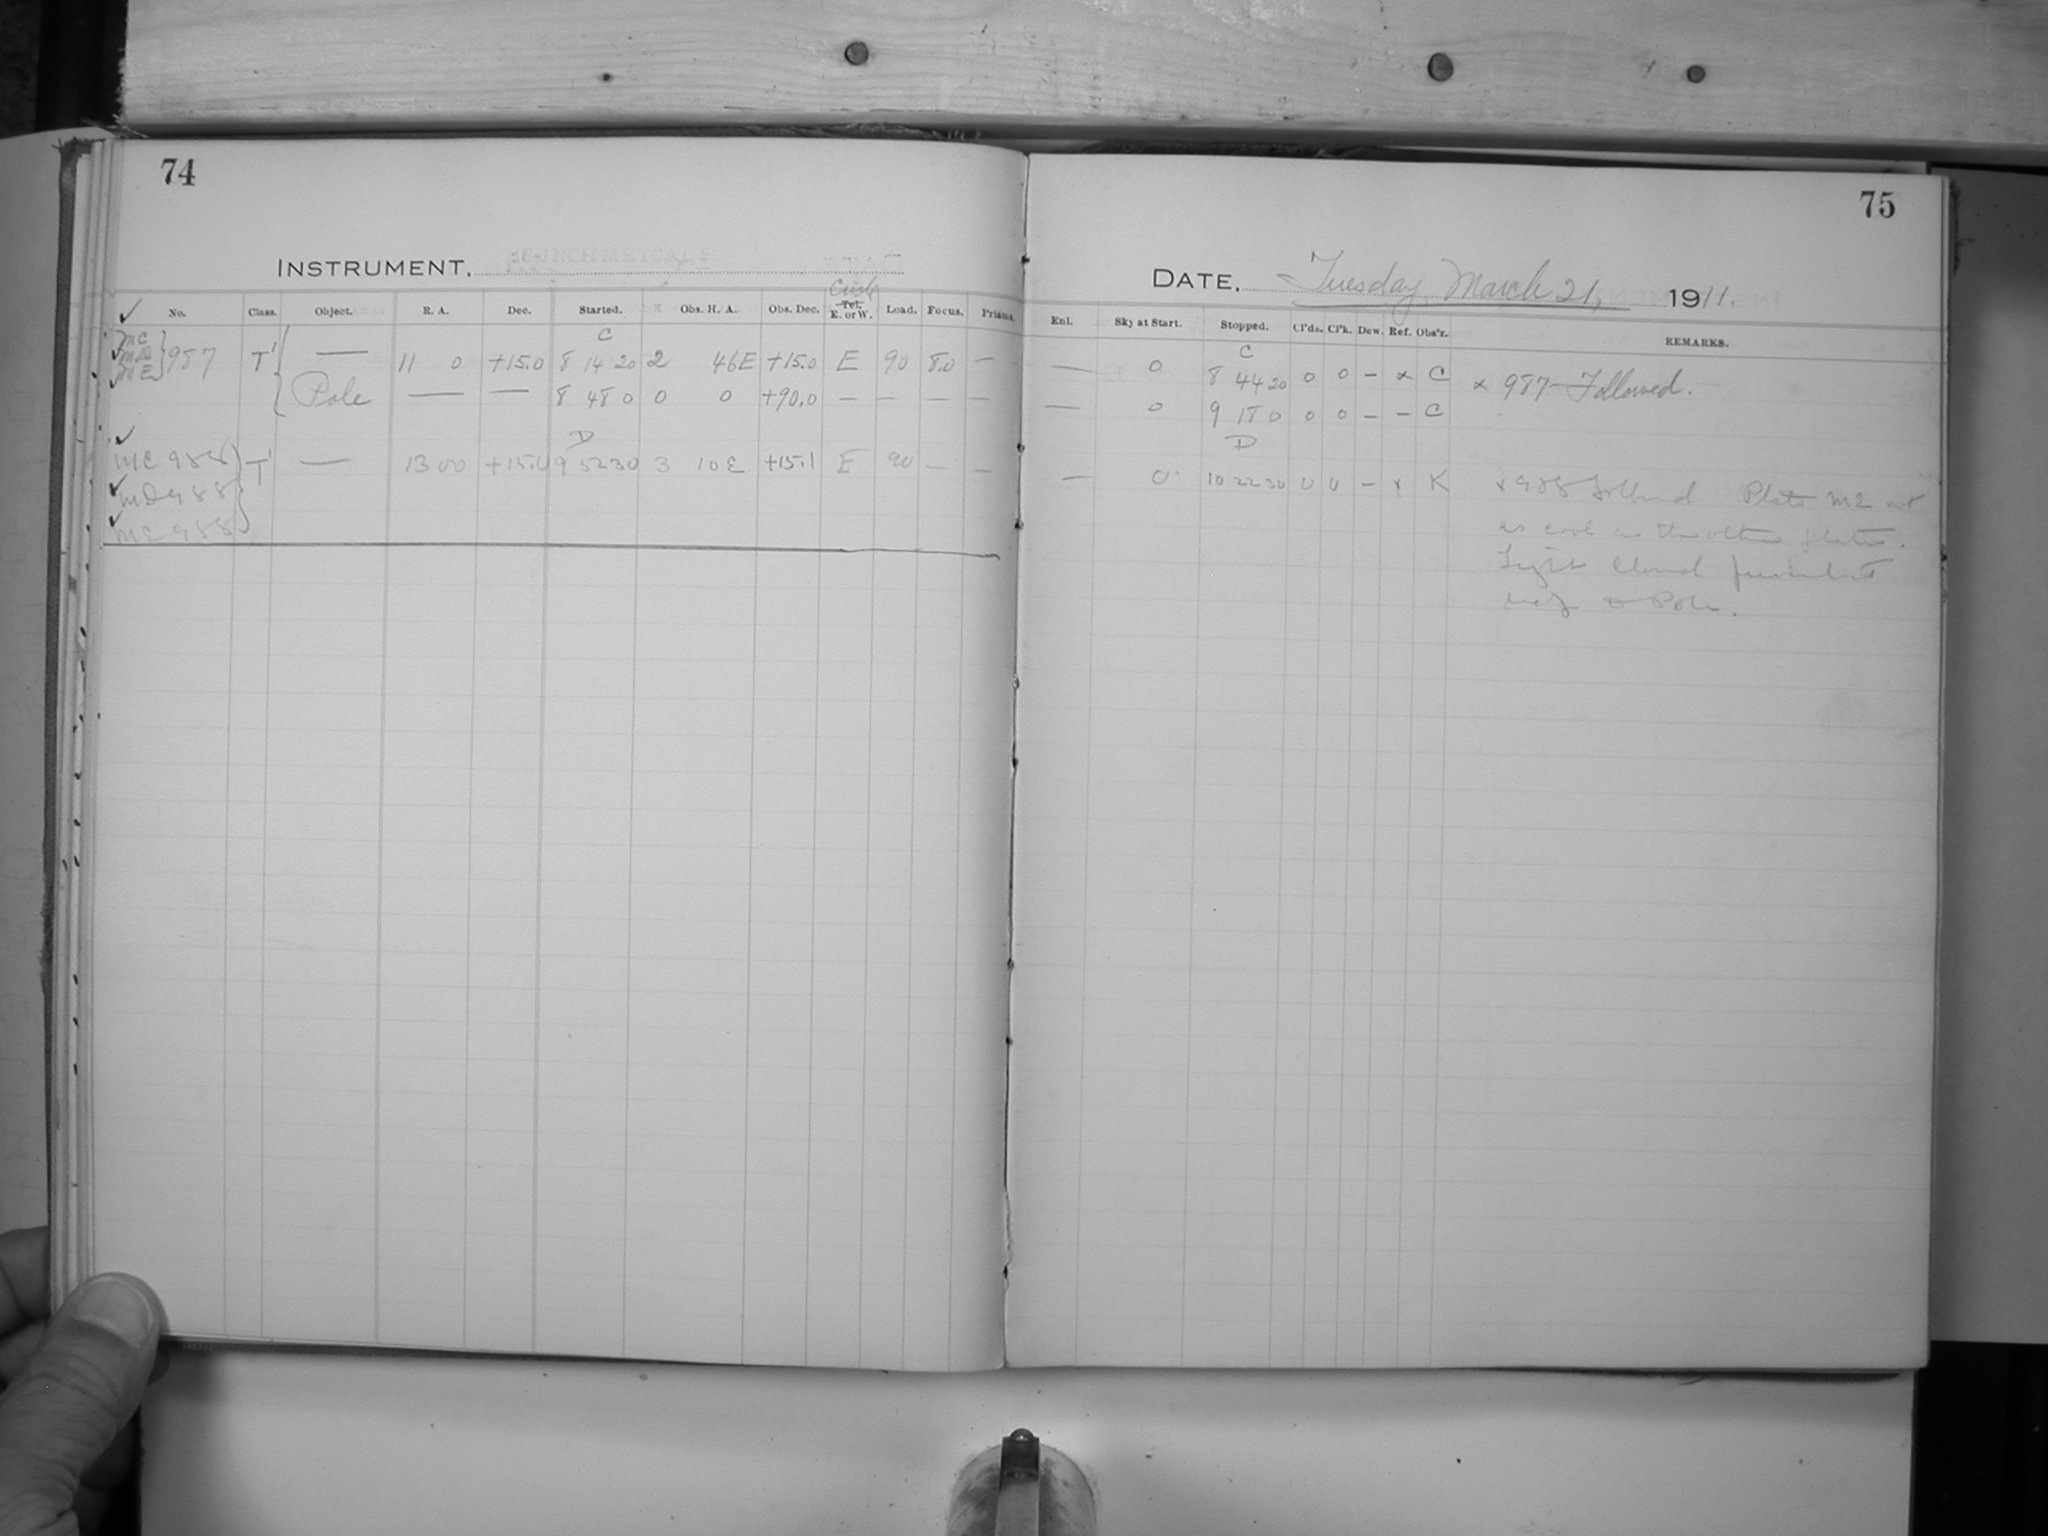 74
INSTRUMENT, 16-INCH METCALF
Circle
No. Class. Object. R. A. Dec. Started. Obs. H. A. Obs. Dec. Tel. E. or W. Load. Focus. Prisms.
C
MC MD ME } 987 T' — 11 0 +15.0 8 14 20 2 46E +15.0 E 90 8.0 —
Pole — — 8 48 0 0 0 +90.0 — — — —
D
MC 988 T' — 13 00 +15.0 9 52 30 3 10 E +15.1 E 90 — —
MD 988
ME 988
75
DATE, Tuesday, March 21, 1911.
Enl. Sky at Start. Stopped. Cl'ds. Cl'k. Dew. Ref. Obs'r. REMARKS.
C
— 0 8 44 20 0 0 — x C x 987 Followed.
— 0 9 18 0 0 0 — — C
D
— 0 10 22 30 0 0 — x K x 988 Followed. Plate ME not
as cool as the other plates.
Light Cloud
Pole.